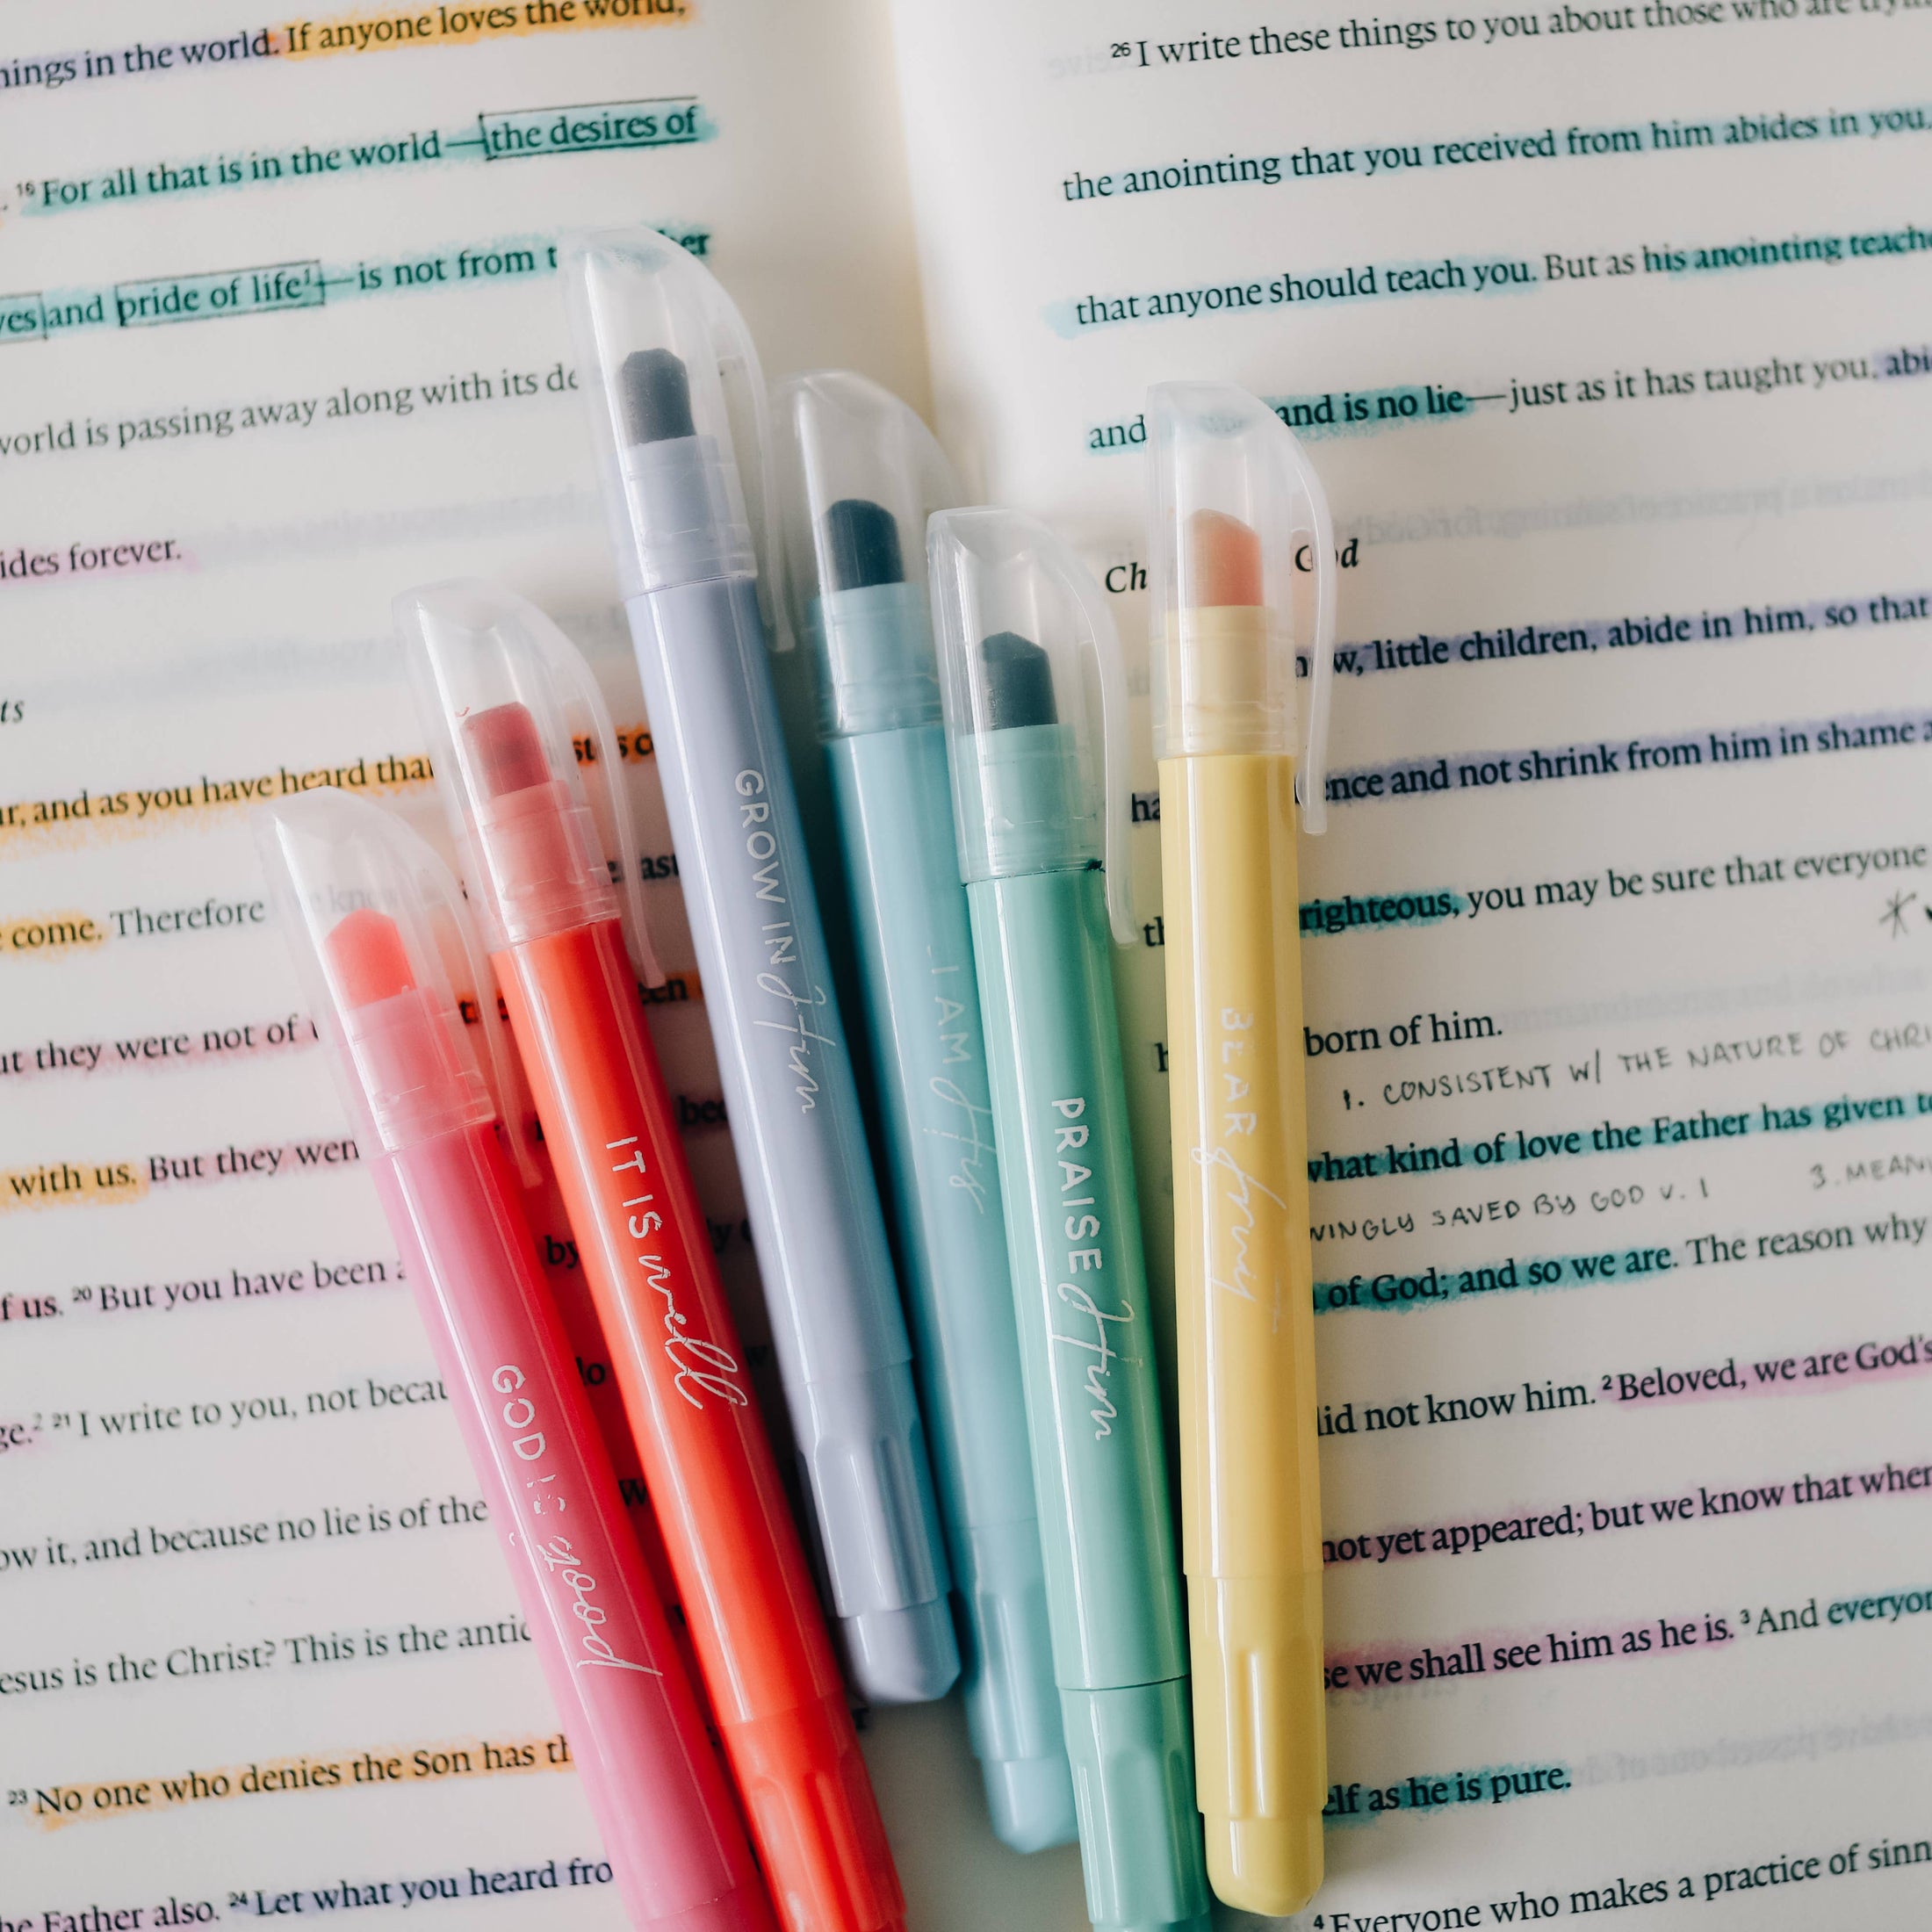 things in the world. If anyone loves the world,
. 16 For all that is in the world—the desires of
and pride of life1—is not from
world is passing away along with its
forever.
and as you have heard that
come. Therefore
they were not of
with us. But they
f us. 20 But you have been
2 21 I write to you, not
it, and because no lie is of the
is the Christ? This is the
23 No one who denies the Son has
Father also. 24 Let what you heard
26 I write these things to you about those who are
the anointing that you received from him abides in you,
that anyone should teach you. But as his anointing
and and is no lie—just as it has taught you,
God
little children, abide in him, so that
and not shrink from him in shame
righteous, you may be sure that everyone
born of him.
1. CONSISTENT W/ THE NATURE OF
what kind of love the Father has given
SAVED BY GOD V. 1 3.
of God; and so we are. The reason why
did not know him. 2 Beloved, we are God's
not yet appeared; but we know that when
we shall see him as he is. 3 And
as he is pure.
4 Everyone who makes a practice of
GOD IS good
IT IS well
GROW IN Him
I AM His
PRAISE Him
BEAR fruit